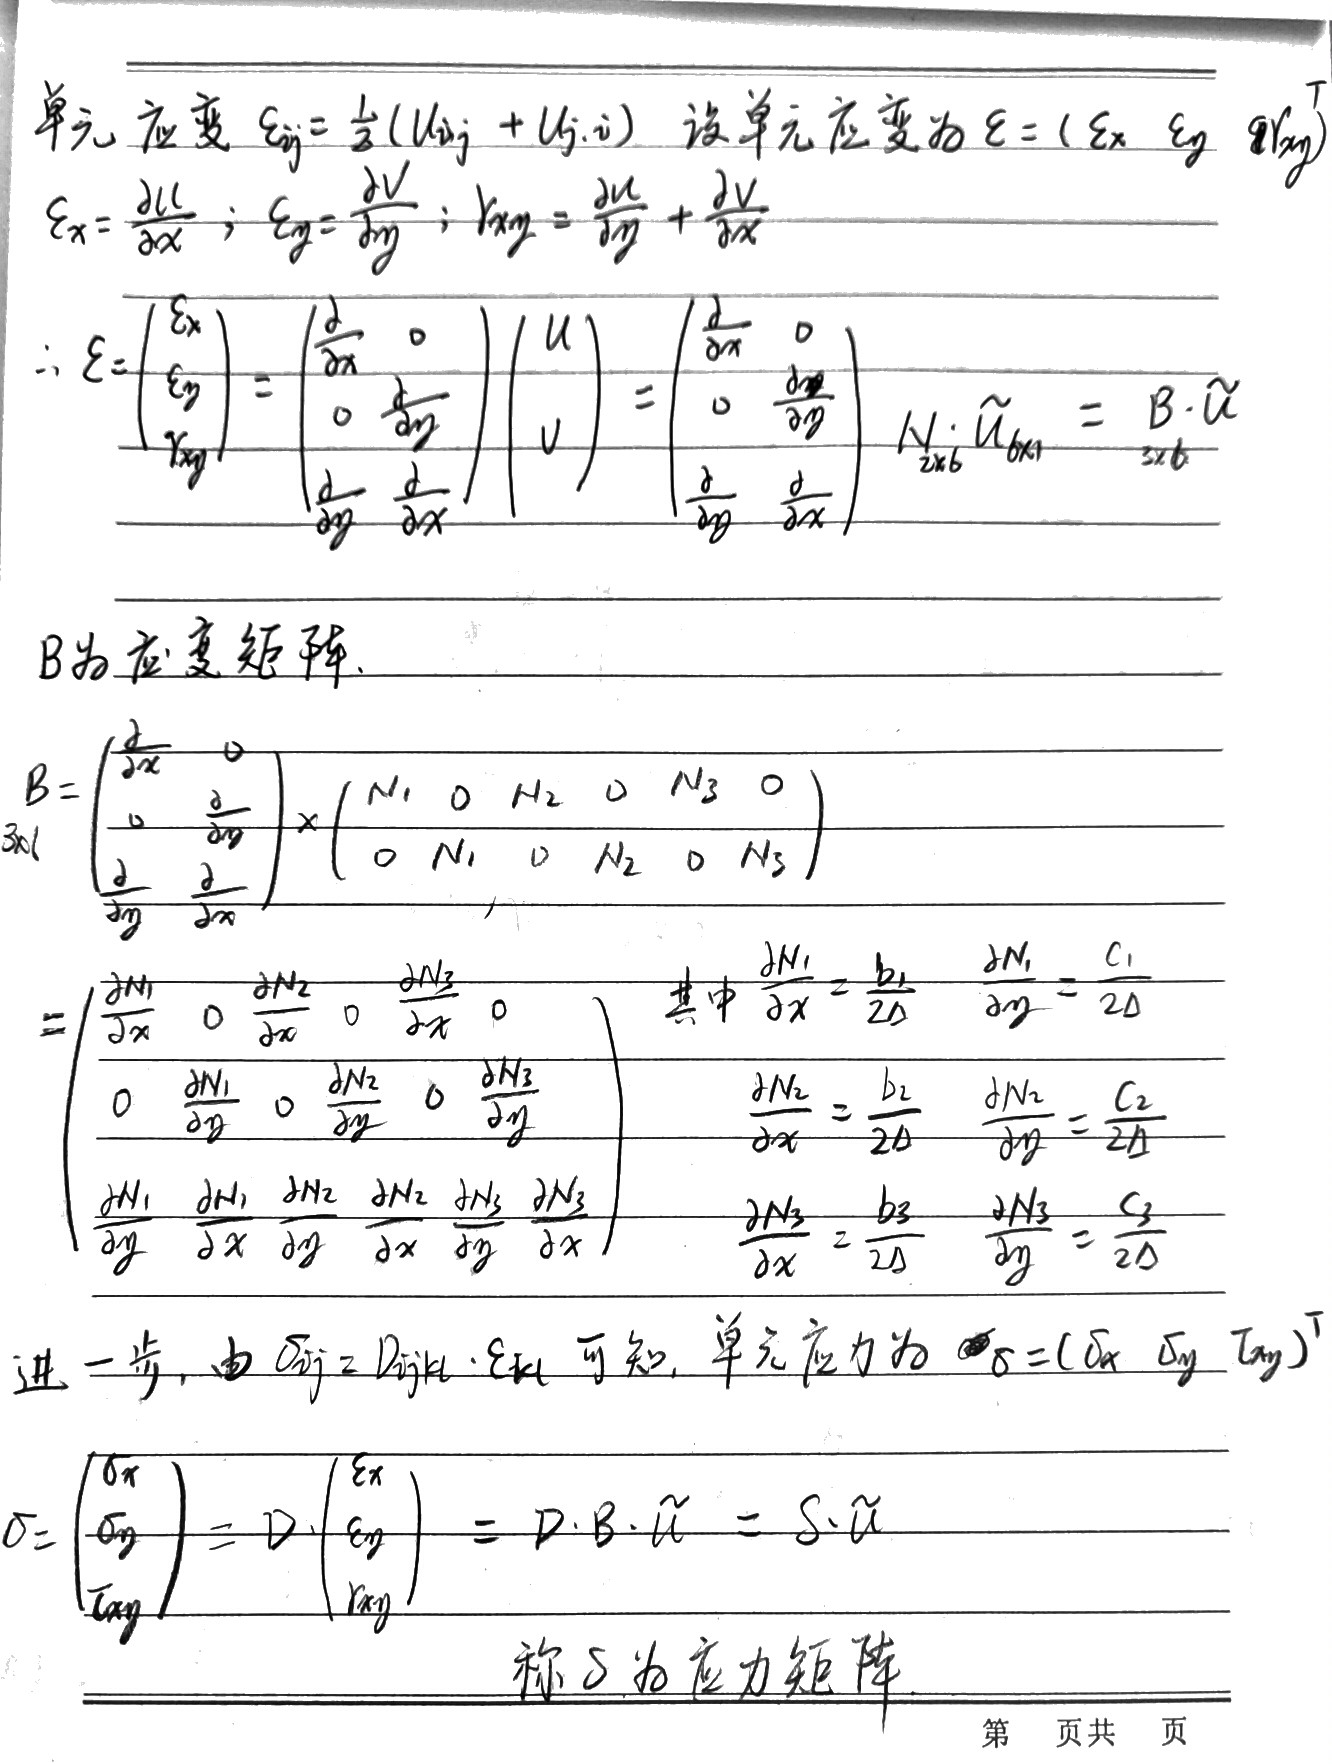 单元应变 εij = 1/2 (Ui,j + Uj,i) 设单元应变为 ε = (εx εy γxy)^T
εx = ∂u/∂x ; εy = ∂V/∂y ; γxy = ∂u/∂y + ∂V/∂x
∴ ε = (εx ; εy ; γxy) = (∂/∂x 0 ; 0 ∂/∂y ; ∂/∂y ∂/∂x) (U ; V) = (∂/∂x 0 ; 0 ∂/∂y ; ∂/∂y ∂/∂x) N_{2×6} · ũ_{6×1} = B_{3×6} · ũ
B为应变矩阵.
B_{3×6} = (∂/∂x 0 ; 0 ∂/∂y ; ∂/∂y ∂/∂x) × (N1 0 N2 0 N3 0 ; 0 N1 0 N2 0 N3)
= (∂N1/∂x 0 ∂N2/∂x 0 ∂N3/∂x 0 ; 0 ∂N1/∂y 0 ∂N2/∂y 0 ∂N3/∂y ; ∂N1/∂y ∂N1/∂x ∂N2/∂y ∂N2/∂x ∂N3/∂y ∂N3/∂x)
其中 ∂N1/∂x = b1/2Δ ∂N1/∂y = C1/2Δ
∂N2/∂x = b2/2Δ ∂N2/∂y = C2/2Δ
∂N3/∂x = b3/2Δ ∂N3/∂y = C3/2Δ
进一步, 由 σij = Dijkl · εkl 可知, 单元应力为 σ = (σx σy τxy)^T
σ = (σx ; σy ; τxy) = D · (εx ; εy ; γxy) = D · B · ũ = S · ũ
称S为应力矩阵.
第 页共 页